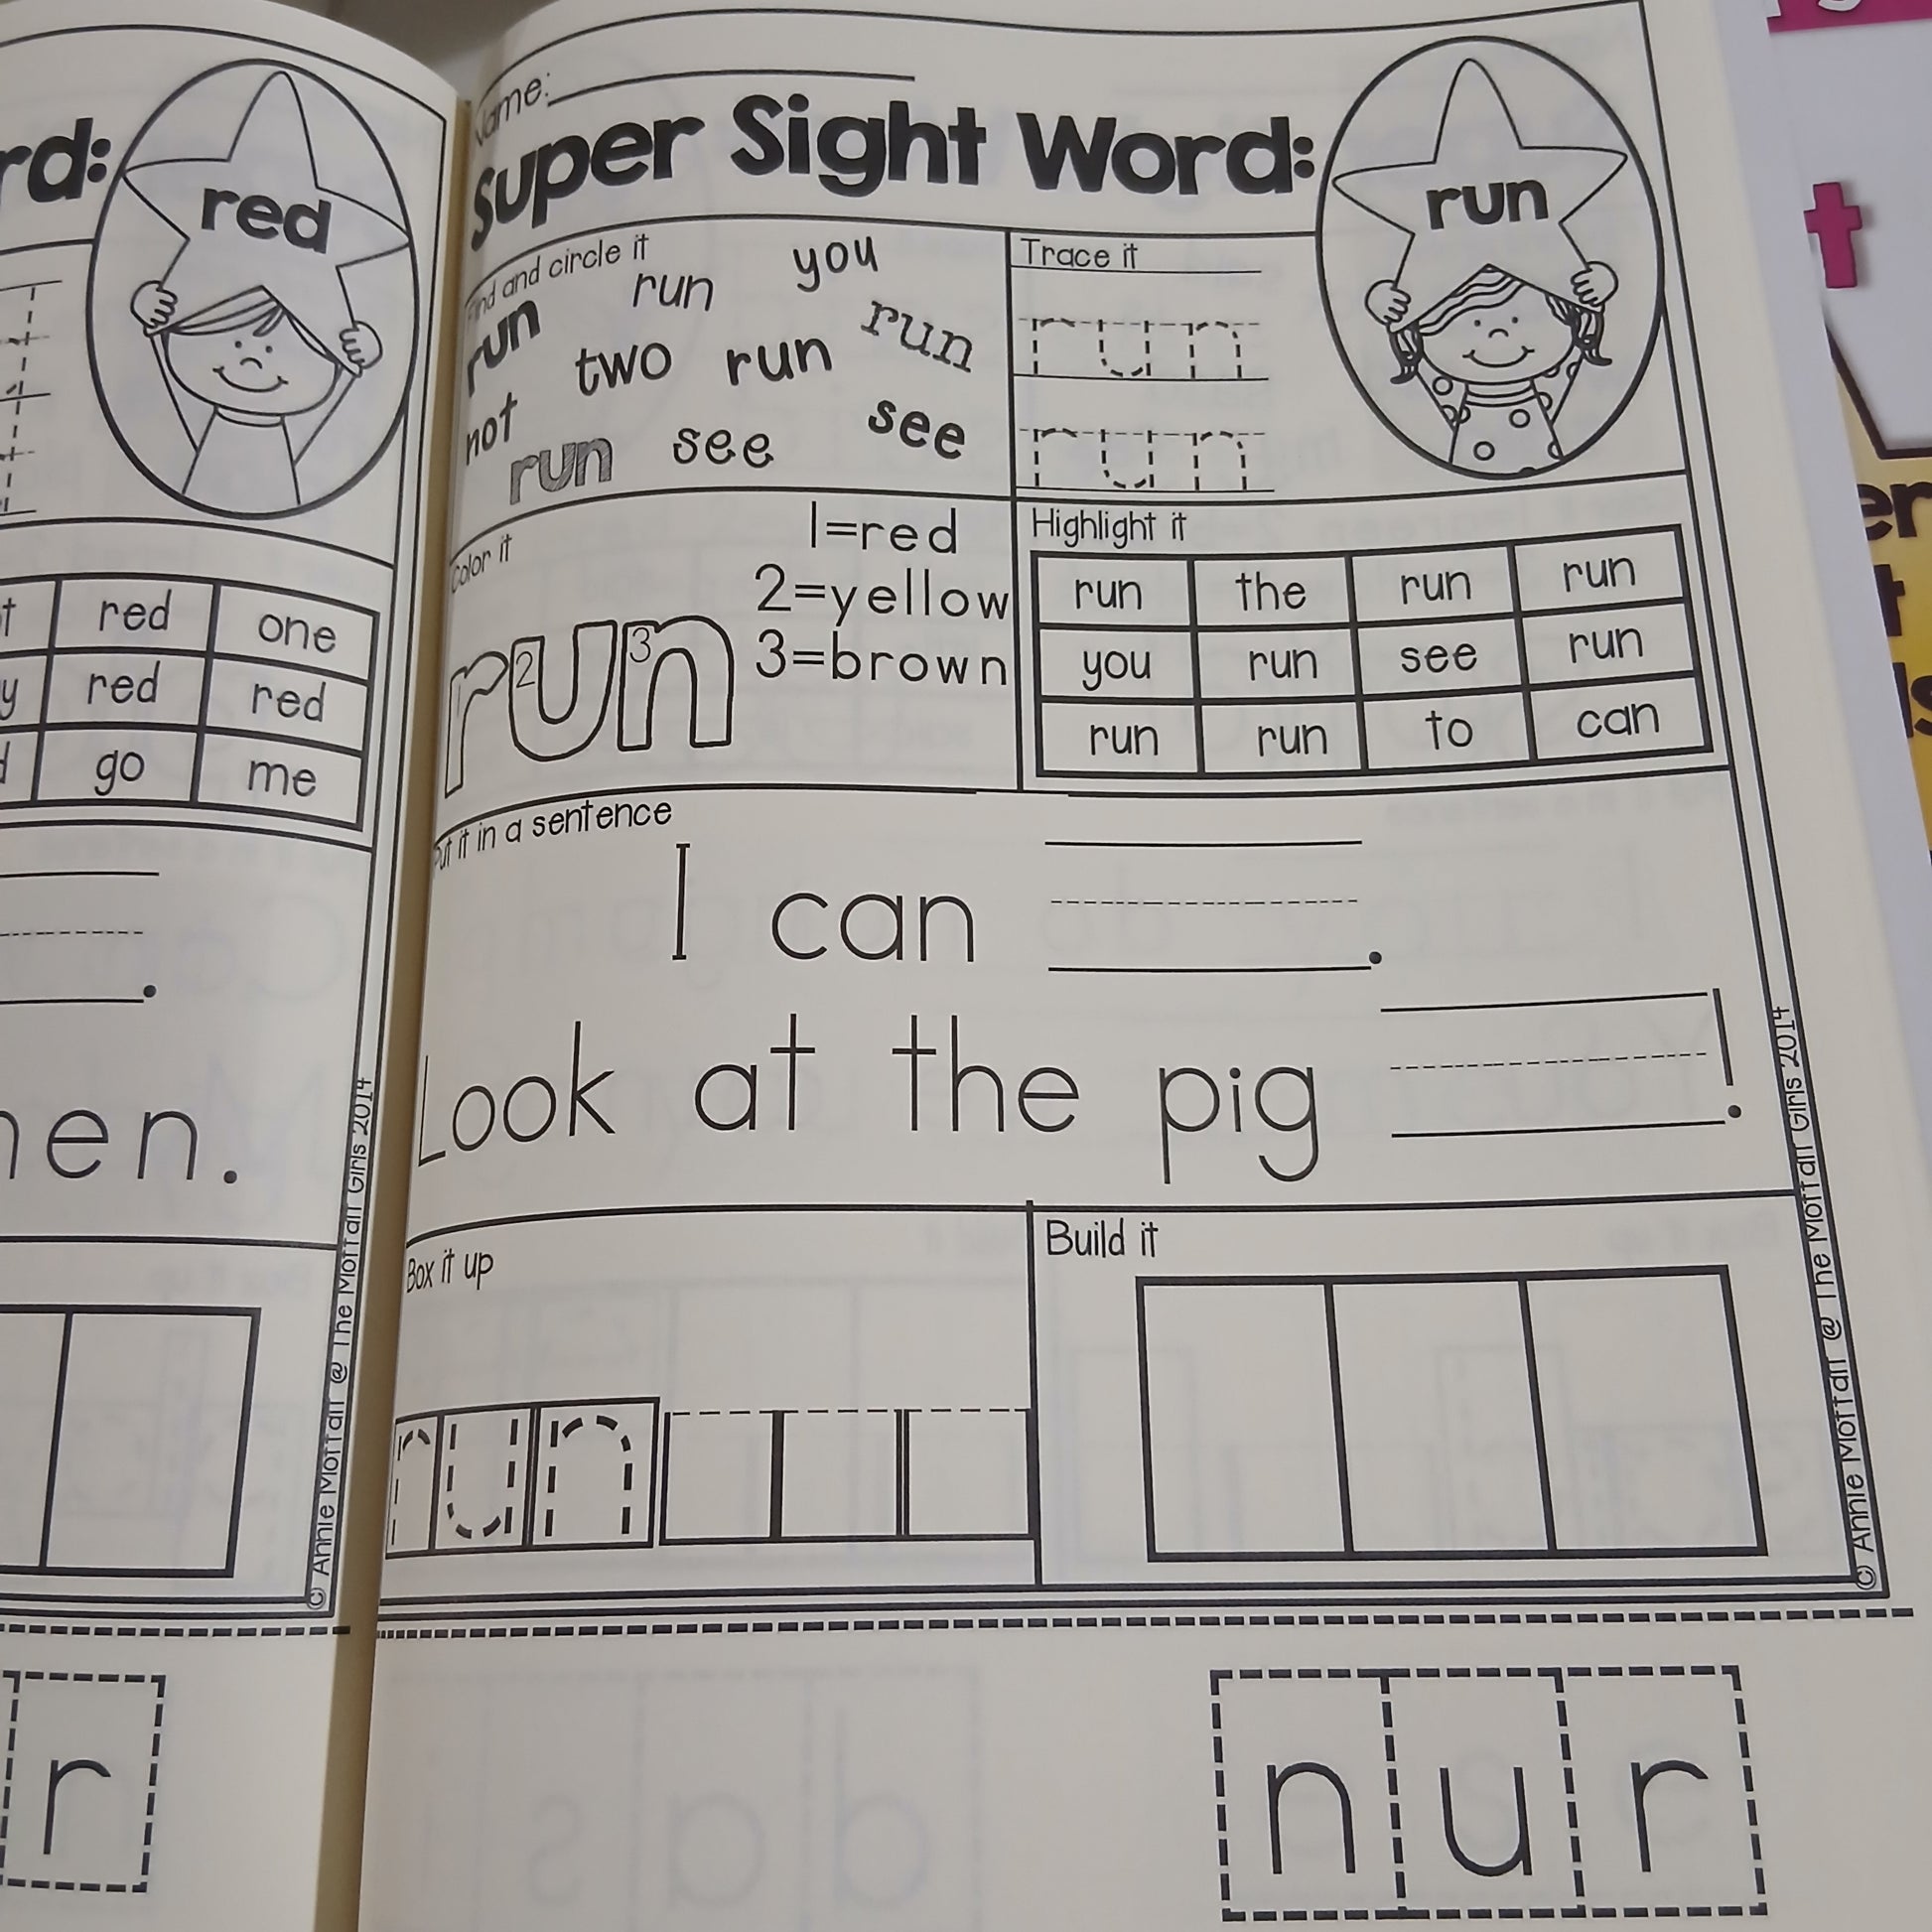 rd:
red
red
one
y
red
red
go
me
.
hen.
© Annie Moffatt @ The Moffatt Girls 2014
r
Name:
Super Sight Word:
run
Find and circle it
run
you
run
run
two
run
not
run
see
see
Trace it
run
run
Color it
1=red
2=yellow
3=brown
1 2 3
run
Highlight it
run the run run
you run see run
run run to can
Put it in a sentence
I can .
Look at the pig !
Box it up
run
Build it
© Annie Moffatt @ The Moffatt Girls 2014
n u r
t
er
t